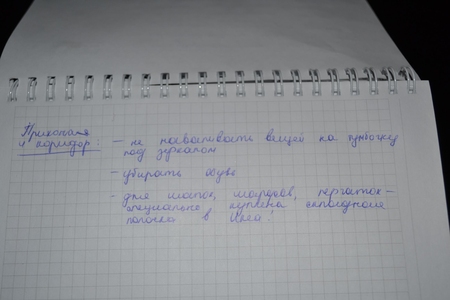 Прихожая
и коридор
- не наваливать вещей на тумбочку
под зеркалом
- убирать обувь
- для шапок, шарфов, перчаток -
специально куплена складная
полочка в Икеа!